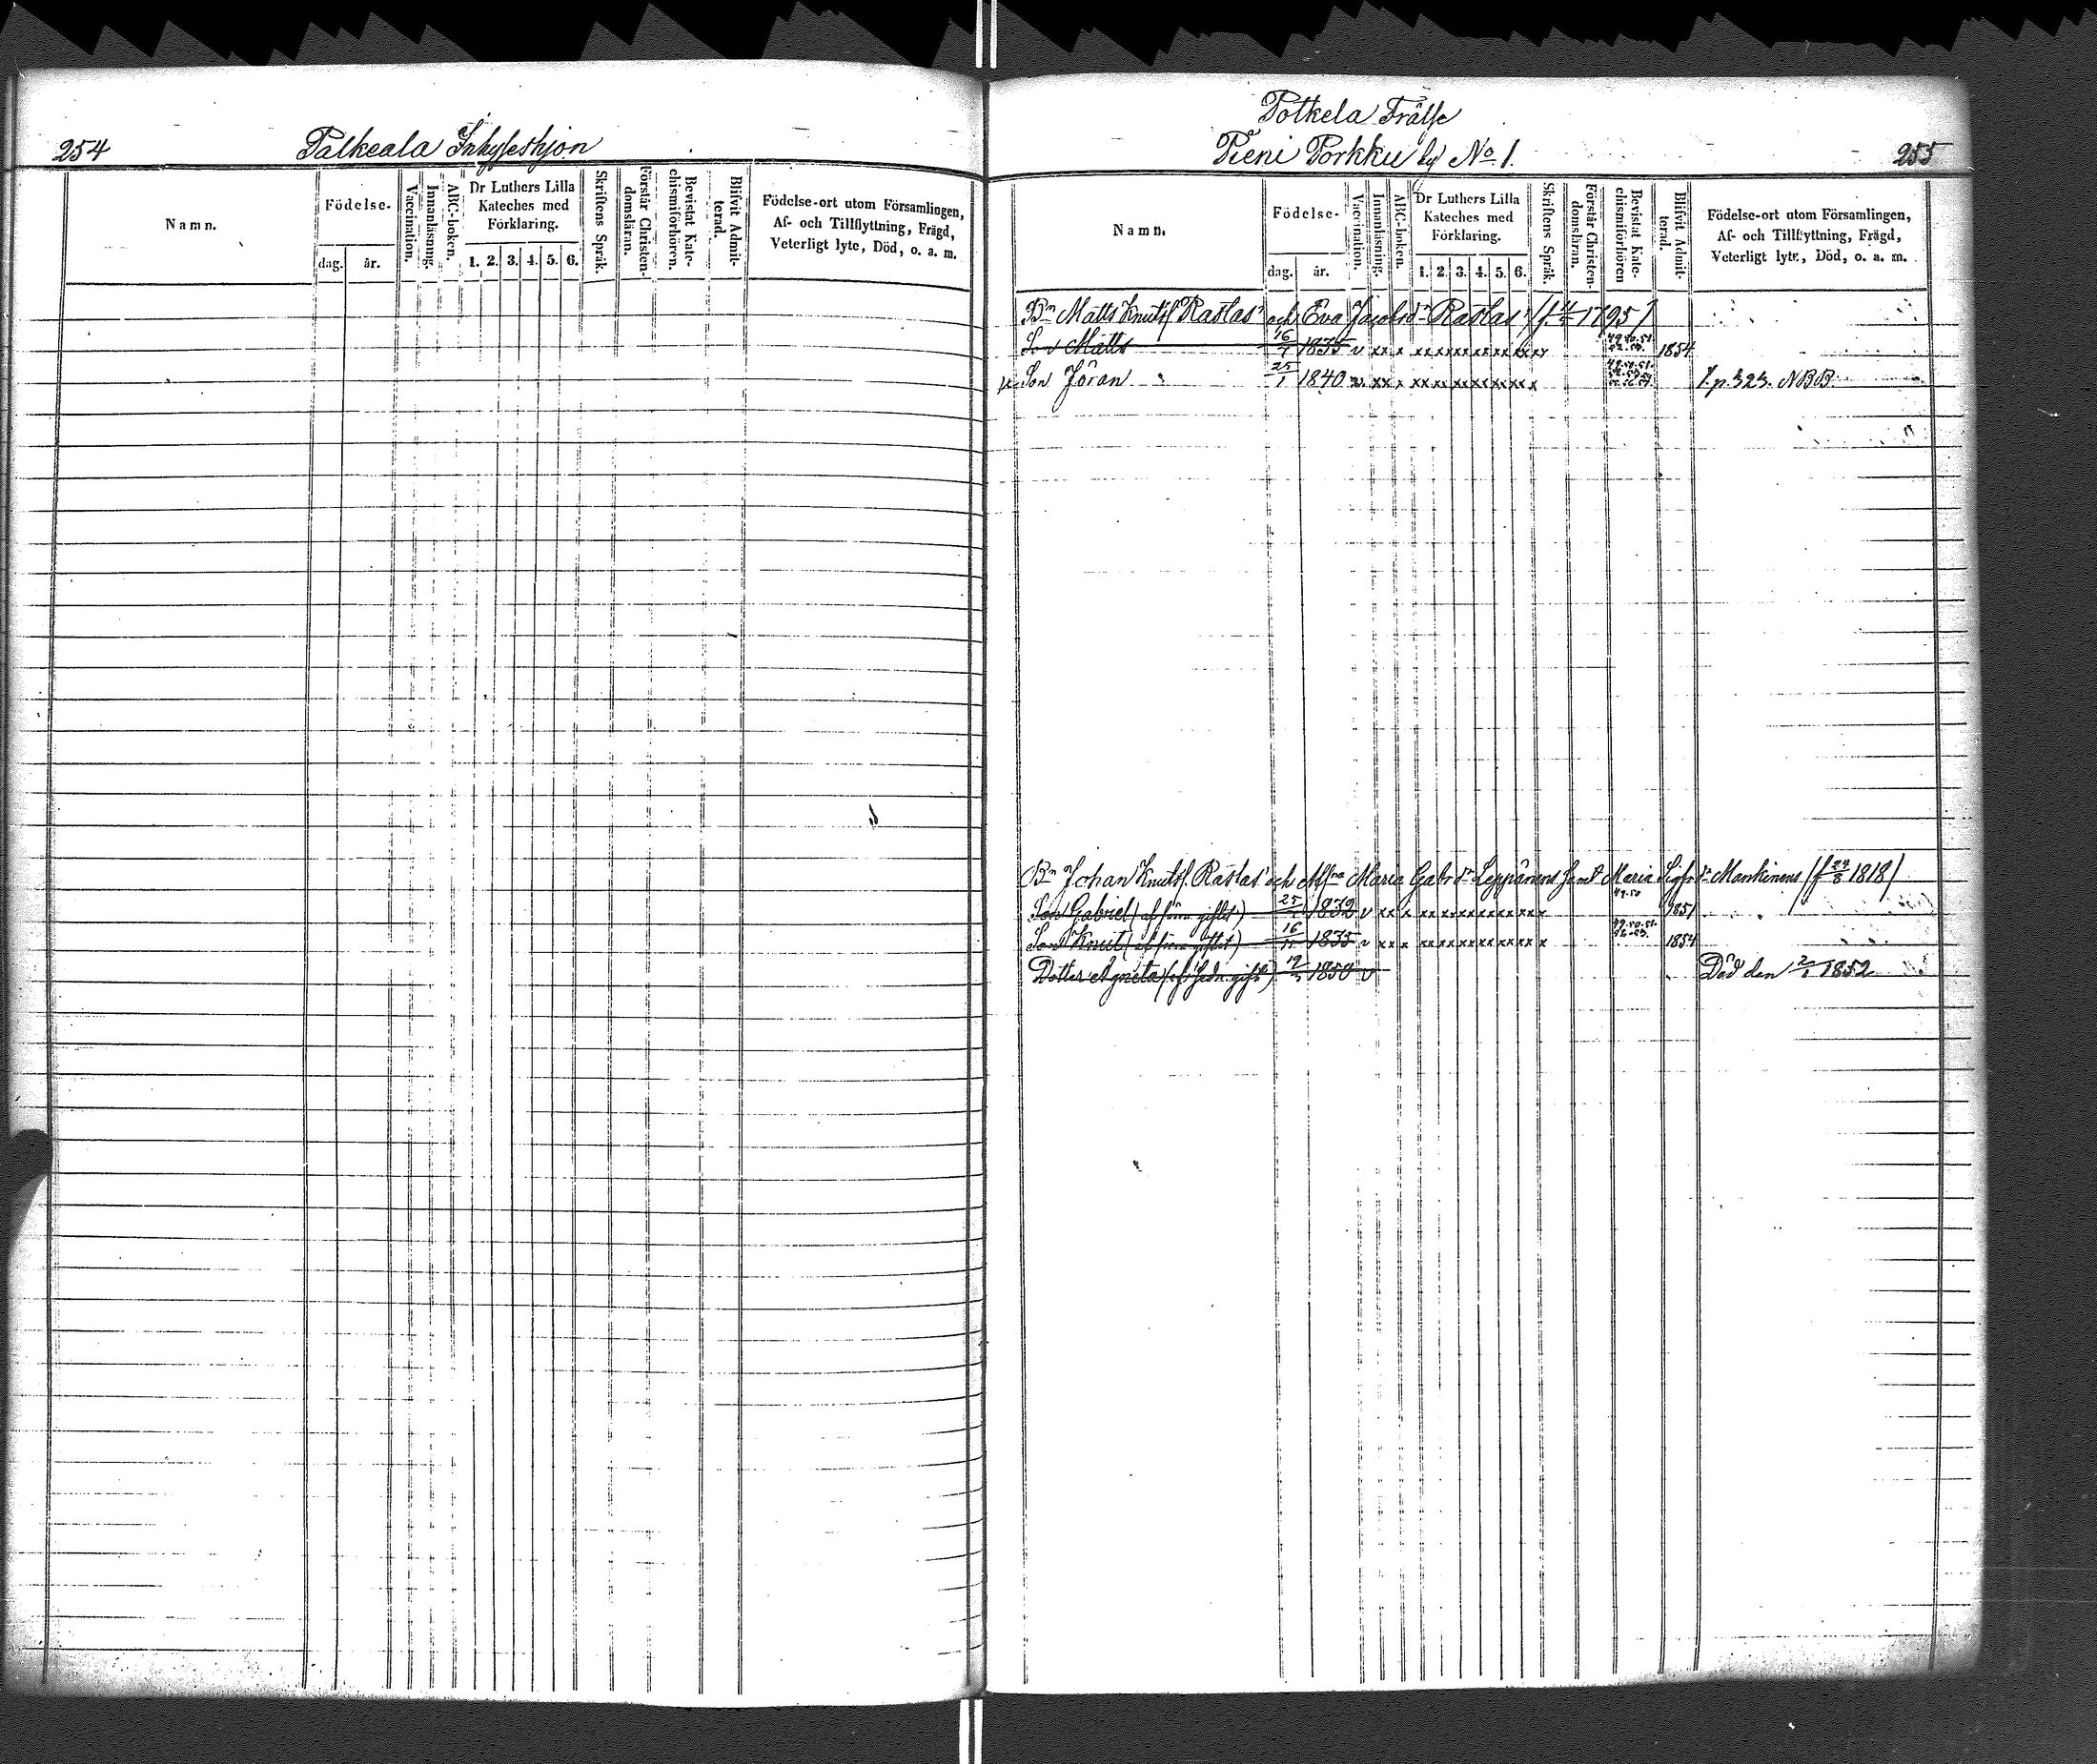 254
Palkeala Inhyseshjon
Namn.
Födelse-
dag. år.
Vaccination.
Innanläsning.
ABC-boken.
Dr Luthers Lilla
Kateches med
Förklaring.
1. 2. 3. 4. 5. 6.
Skriftens Språk.
Förstår Christen-
domsläran.
Bevistat Kate-
chismiförhören.
Blifvit Admit-
terad.
Födelse-ort utom Församlingen,
Af- och Tillflyttning, Frägd,
Veterligt lyte, Död, o. a. m.
Potkela Frälse
Pieni Porkku by No 1.
255
Namn.
Födelse-
dag. år.
Vaccination.
Innanläsning.
ABC-boken.
Dr Luthers Lilla
Kateches med
Förklaring.
1. 2. 3. 4. 5. 6.
Skriftens Språk.
Förstår Christen-
domsläran.
Bevistat Kate-
chismiförhören
Blifvit Admit-
terad.
Födelse-ort utom Församlingen,
Af- och Tillflyttning, Frägd,
Veterligt lyte, Död, o. a. m.
Bn Matts Knutss. Rastas och Eva Jacobsdr Rastas 1795)
Son Matts 16 1835 v xx x xx xx xx xx xx xx x 1854
Son Jöran 25/1 1840 v xx x xx xx xx xx xx xx x p. 323. NBB
Bn Johan Knutss. Rastas och Maria Gabrdr Leppänens samt Maria Sigfrdr Mankinens (f 24/8 1818)
Son Gabriel (af förra giftet) 25 1832 v xx x xx xx xx xx xx xx x 49.50 1851
Son Knut (af förra giftet) 16 1835 v xx x xx xx xx xx xx xx x 1854
Dotter Agneta (af sedn. gift) 12 1850 v Död den 1852